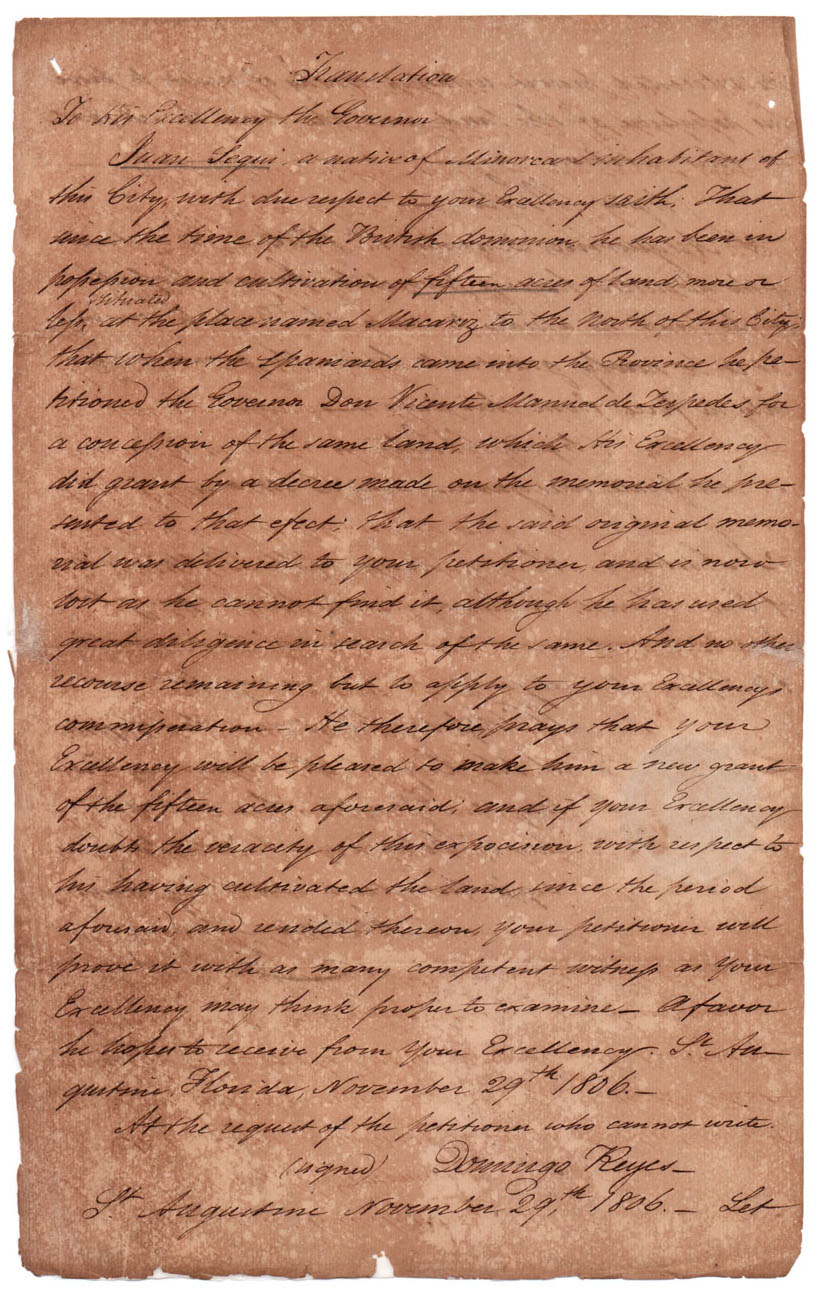 Translation
To His Excellency the Governor
Juan Segui, a native of Minorca & inhabitant of
this City, with due respect to your Exellency saith; That
since the time of the British dominion, he has been in
possession and cultivation of fifteen acres of land, more or
situated
less, at the place named Macariz, to the North of this City;
that when the Spaniards came into the Province he pe-
titioned the Governor Don Vicente Manuel de Zespedes for
a concession of the same land, which His Excellency
did grant by a decree made on the memorial he pre-
sented to that efect; that the said original memo-
rial was delivered to your petitioner, and is now
lost as he cannot find it, although he has used
great diligence in search of the same. And no other
recourse remaining but to apply to your Excellencys
commiseration - He therefore prays that your
Excellency will be pleased to make him a new grant
of the fifteen acres aforesaid; and if your Excellency
doubts the veracety of this exposision, with respect to
his having cultivated the land, since the period
aforesaid, and resided thereon, your petitioner will
prove it with as many competent witness as your
Excellency may think proper to examine - A favor
he hopes to receive from your Excellency. St. Au-
gustine, Florida, November 29th 1806. -
At the request of the petitioner who cannot write.
(signed) Domingo Reyes -
St. Augustine November 29,th 1806. - Let